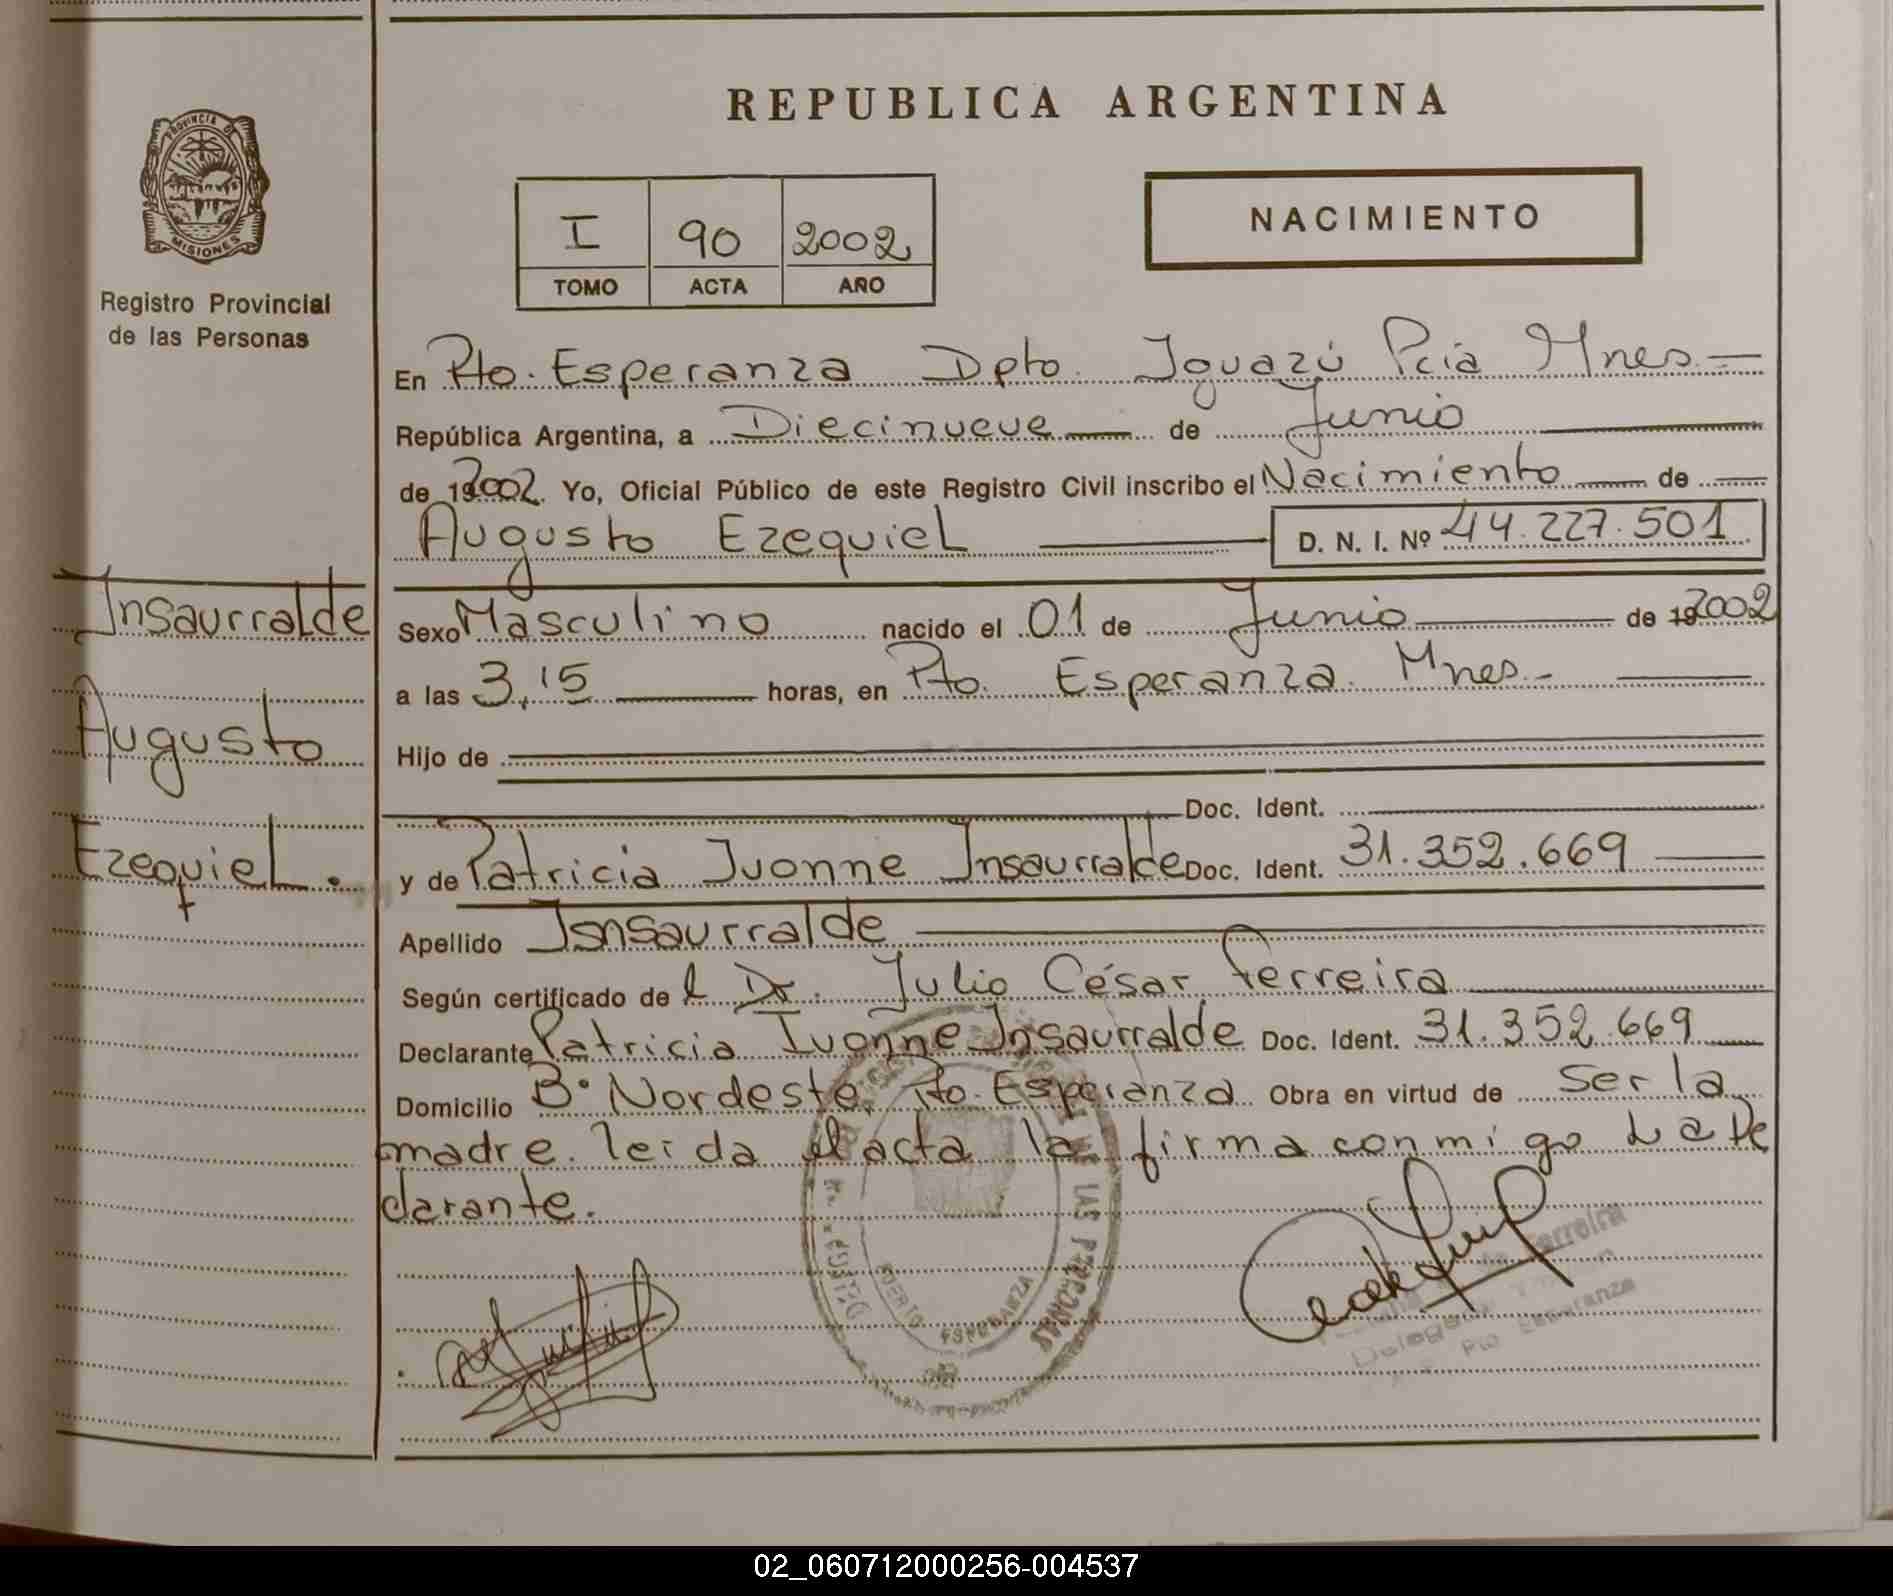 REPUBLICA ARGENTINA
PROVINCIA DE
MISIONES
Registro Provincial
de las Personas
I 90 2002
TOMO ACTA AÑO
NACIMIENTO
En Pto. Esperanza Dpto. Iguazú Pcia Mnes.=
República Argentina, a Diecinueve de Junio
de 192002. Yo, Oficial Público de este Registro Civil inscribo el Nacimiento de
Augusto Ezequiel D. N. I. Nº 44.227.501
Insaurralde
Augusto
Ezequiel.
Sexo Masculino nacido el 01 de Junio de 192002
a las 3,15 horas, en Pto. Esperanza. Mnes.-
Hijo de
Doc. Ident.
y de Patricia Ivonne Insaurralde Doc. Ident. 31.352.669
Apellido Isnsaurralde
Según certificado de l Dr. Julio César Ferreira
Declarante Patricia Ivonne Insaurralde Doc. Ident. 31.352.669
Domicilio Bº Nordeste, Pto. Esperanza Obra en virtud de ser la
madre. leida el acta la firma conmigo La De
clarante.
DE LAS PERSONAS
PUERTO ESPERANZA
Ferreira
Delegada
Pto Esperanza
02_060712000256-004537